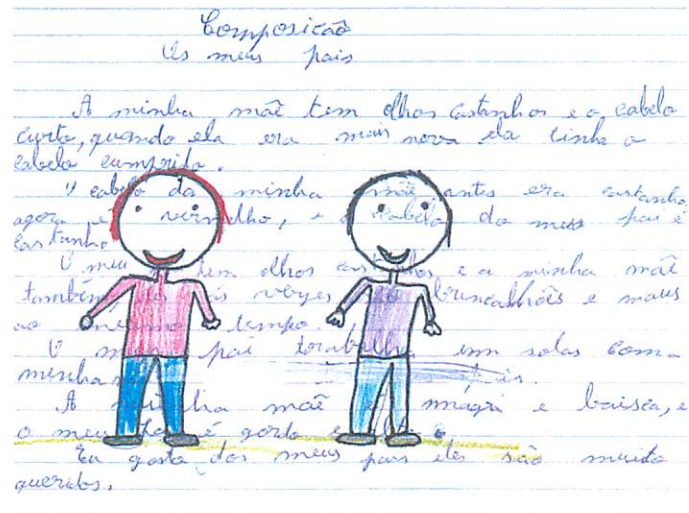 Composicão
Os meus pais
A minha mãe tem olhos castanhos e o cabelo
curto, quando ela era mais nova ela tinha o
cabelo cumprido.
O cabelo da minha mãe antes era castanho,
agora é vermelho, e o cabelo do meu pai é
castanho
O meu tem olhos castanhos e a minha mãe
também às vezes são brincalhões e maus
ao mesmo tempo.
O meu pai trabalha em solas com a
minha pais.
A minha mãe é magra e baixa, e
o meu pai é gordo e
Eu gosto dos meus pais eles são muito
queridos.